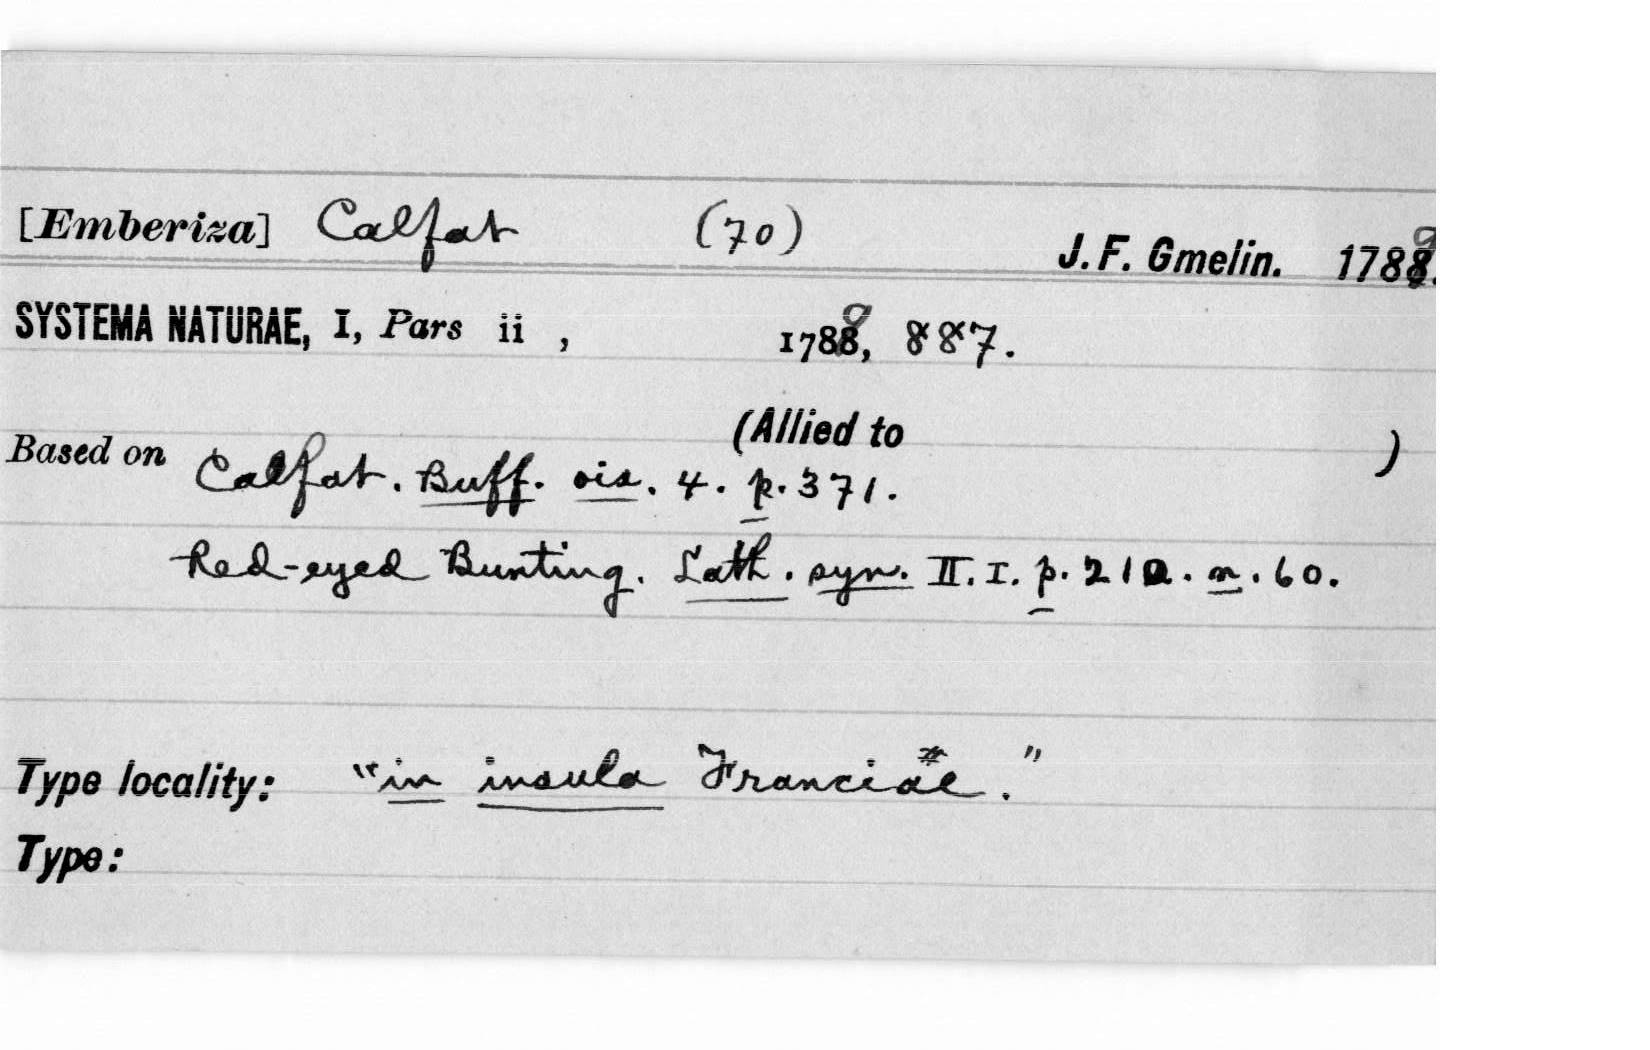 [Emberiza] Calfat (70) J. F. Gmelin. 1789.
SYSTEMA NATURAE, I, Pars ii , 1789, 887.
(Allied to )
Based on Calfat. Buff. ois. 4. p. 371.
Red-eyed Bunting. Lath. syn. II. I. p. 210. n. 60.
Type locality: "in insula Franciae."
Type: